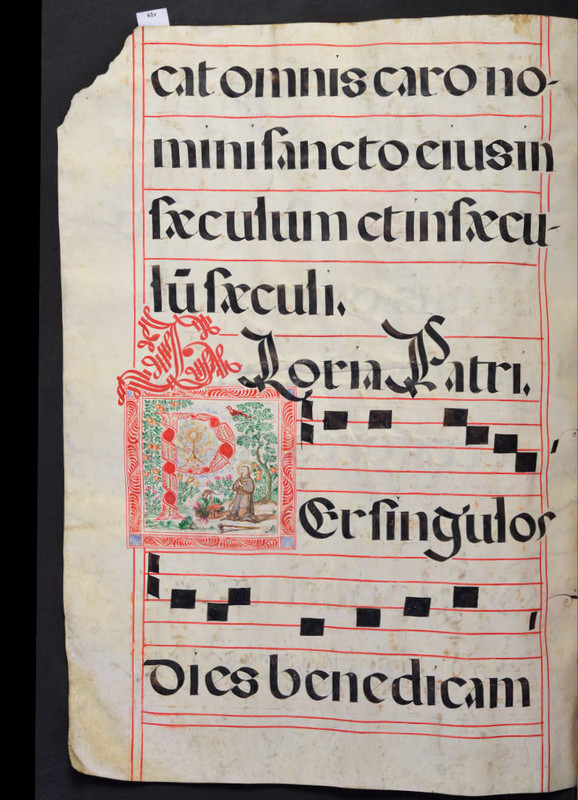 cat omnis caro no-
mini sancto eius in
sæculum et in sæcu-
lū sæculi.
Gloria Patri.
PEr singulos
dies benedicam